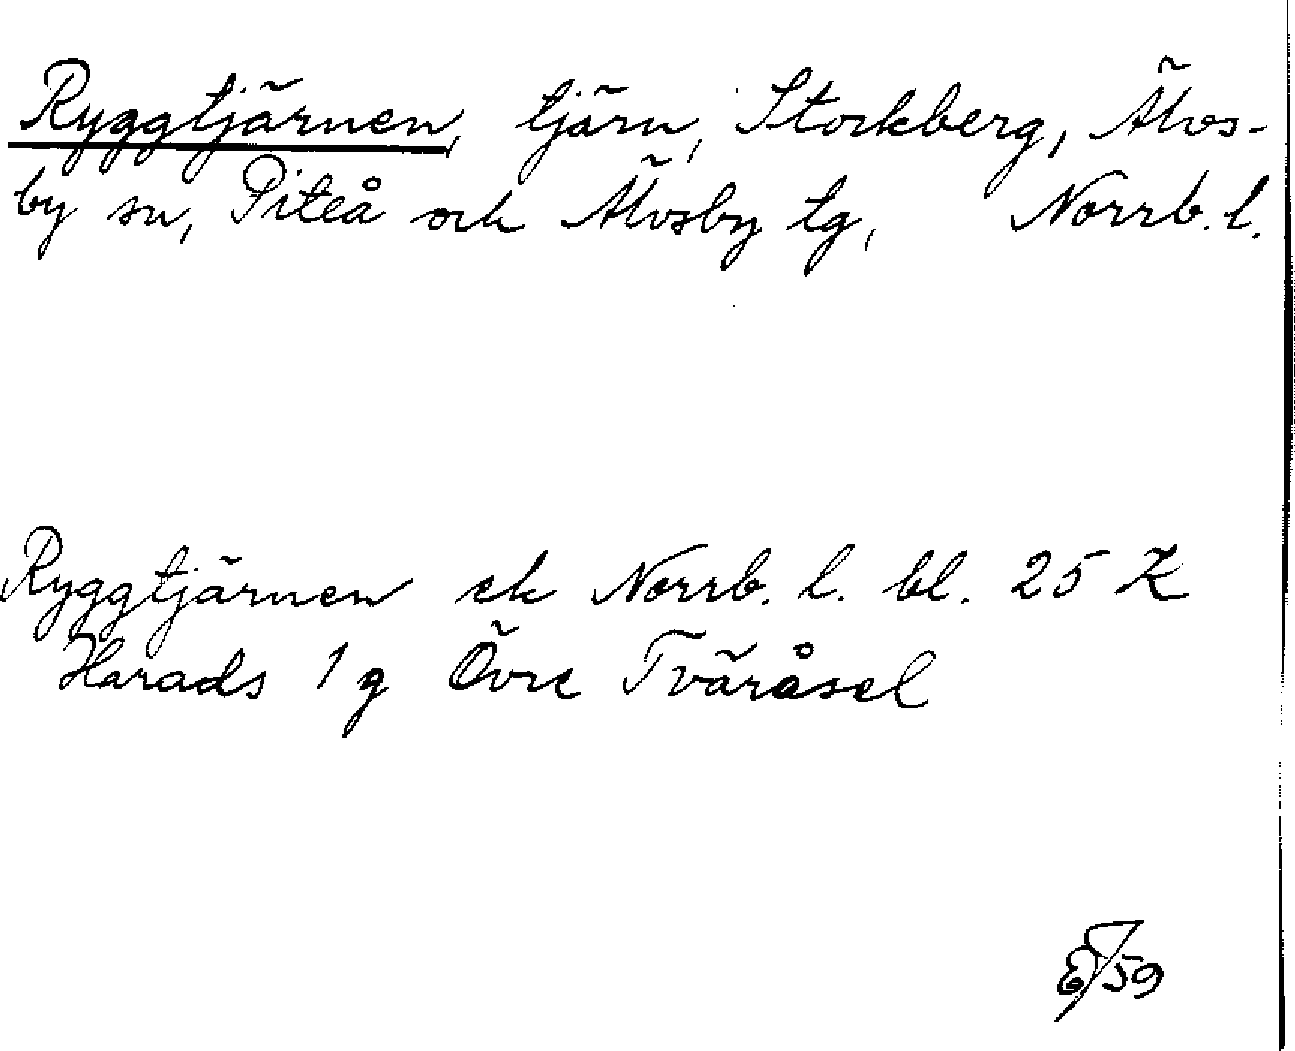 Ryggtjärnen, tjärn, Stockberg, Älvs-
by sn, Piteå och Älvsby tg, Norrb. l.
Ryggtjärnen ek Norrb. l. bl. 25 K
Harads 1 g Övre Tväråsel